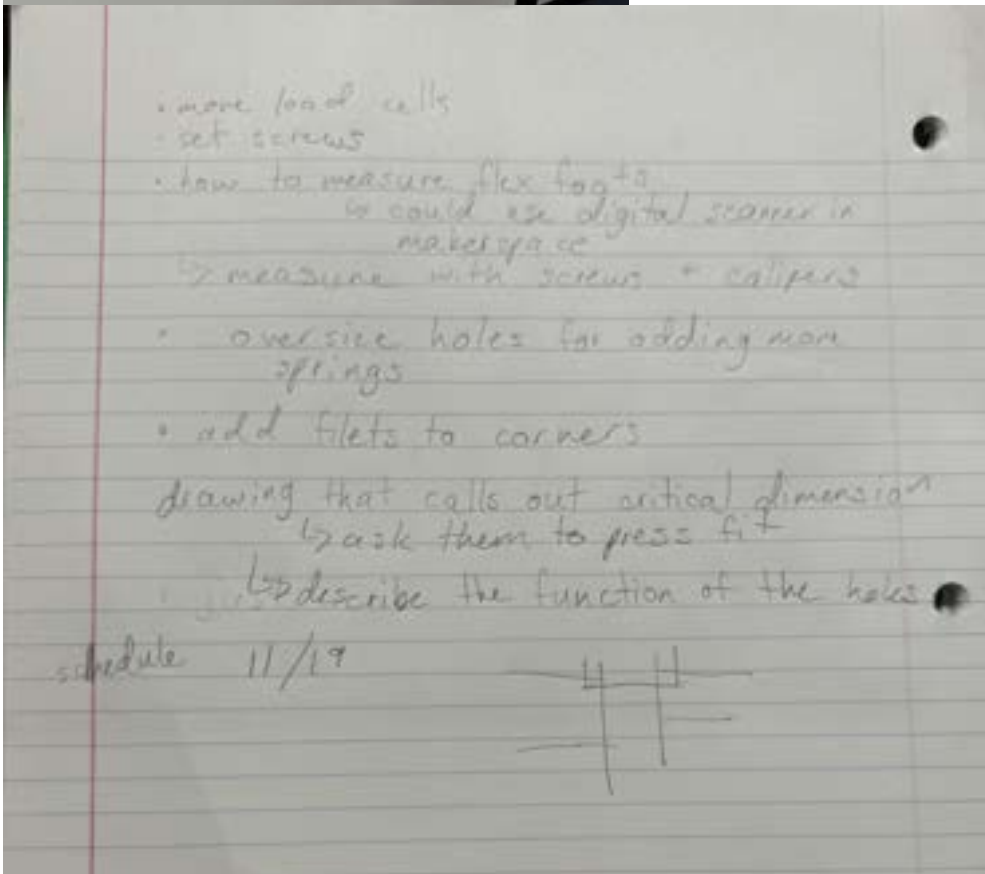 • more load cells
• set screws
• how to measure flex foots
↳ could use digital scanner in
makerspace
↳ measure with screws + calipers
• oversize holes for adding more
springs
• add filets to corners
drawing that calls out critical dimension
↳ ask them to press fit
↳ describe the function of the holes
schedule 11/19